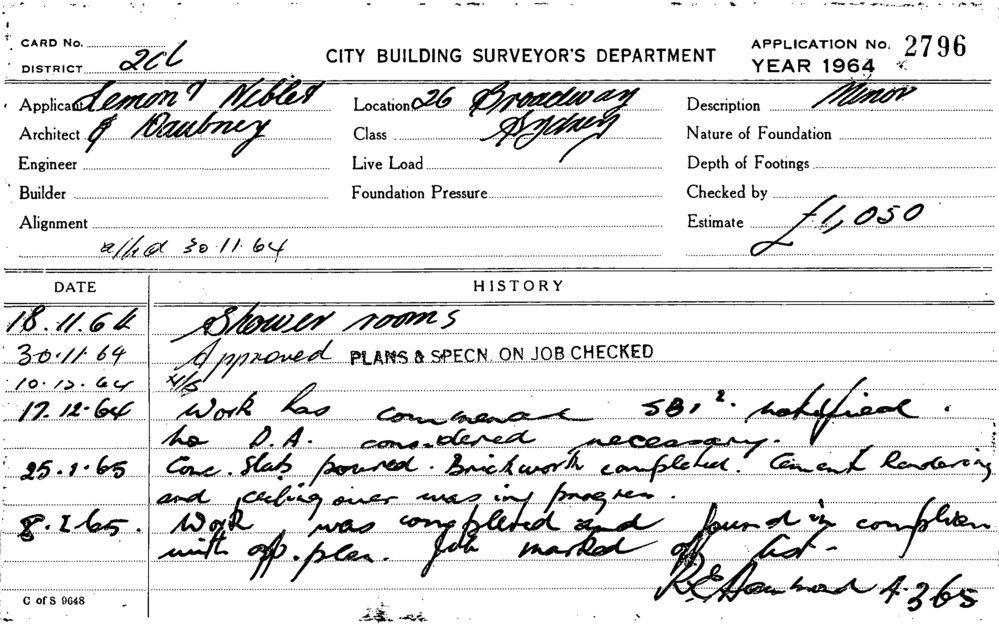 CARD No.
DISTRICT 2cl
CITY BUILDING SURVEYOR'S DEPARTMENT
APPLICATION No. 2796
YEAR 1964
Applicant Lemon & Niblet
Location 26 Broadway
Description Minor
Architect Daubney
Class Sydney
Nature of Foundation
Engineer
Live Load
Depth of Footings
Builder
Foundation Pressure
Checked by
Alignment
Estimate £1,050
30.11.64
DATE HISTORY
18.11.64 Shower rooms
30.11.64 Approved PLANS & SPECN. ON JOB CHECKED
10.12.64
17.12.64 Work has commenced SBI 2. notified.
no D.A. considered necessary.
25.1.65 Conc. Slab poured. Brickwork completed. Cement Rendering
and ceiling over was in progress.
8.2.65. Work was completed and found in complian
with app. plan. Job marked off list-
4.3.65
C of S 9648